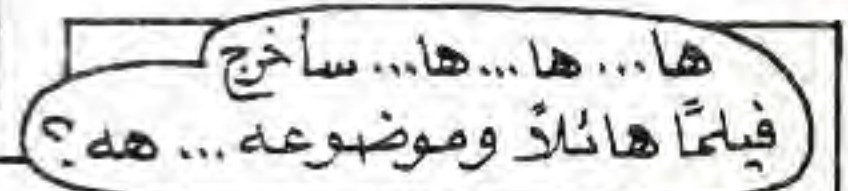 ها... ها... ها... سأخرج
فيلمًا هائلاً وموضوعه... هه؟